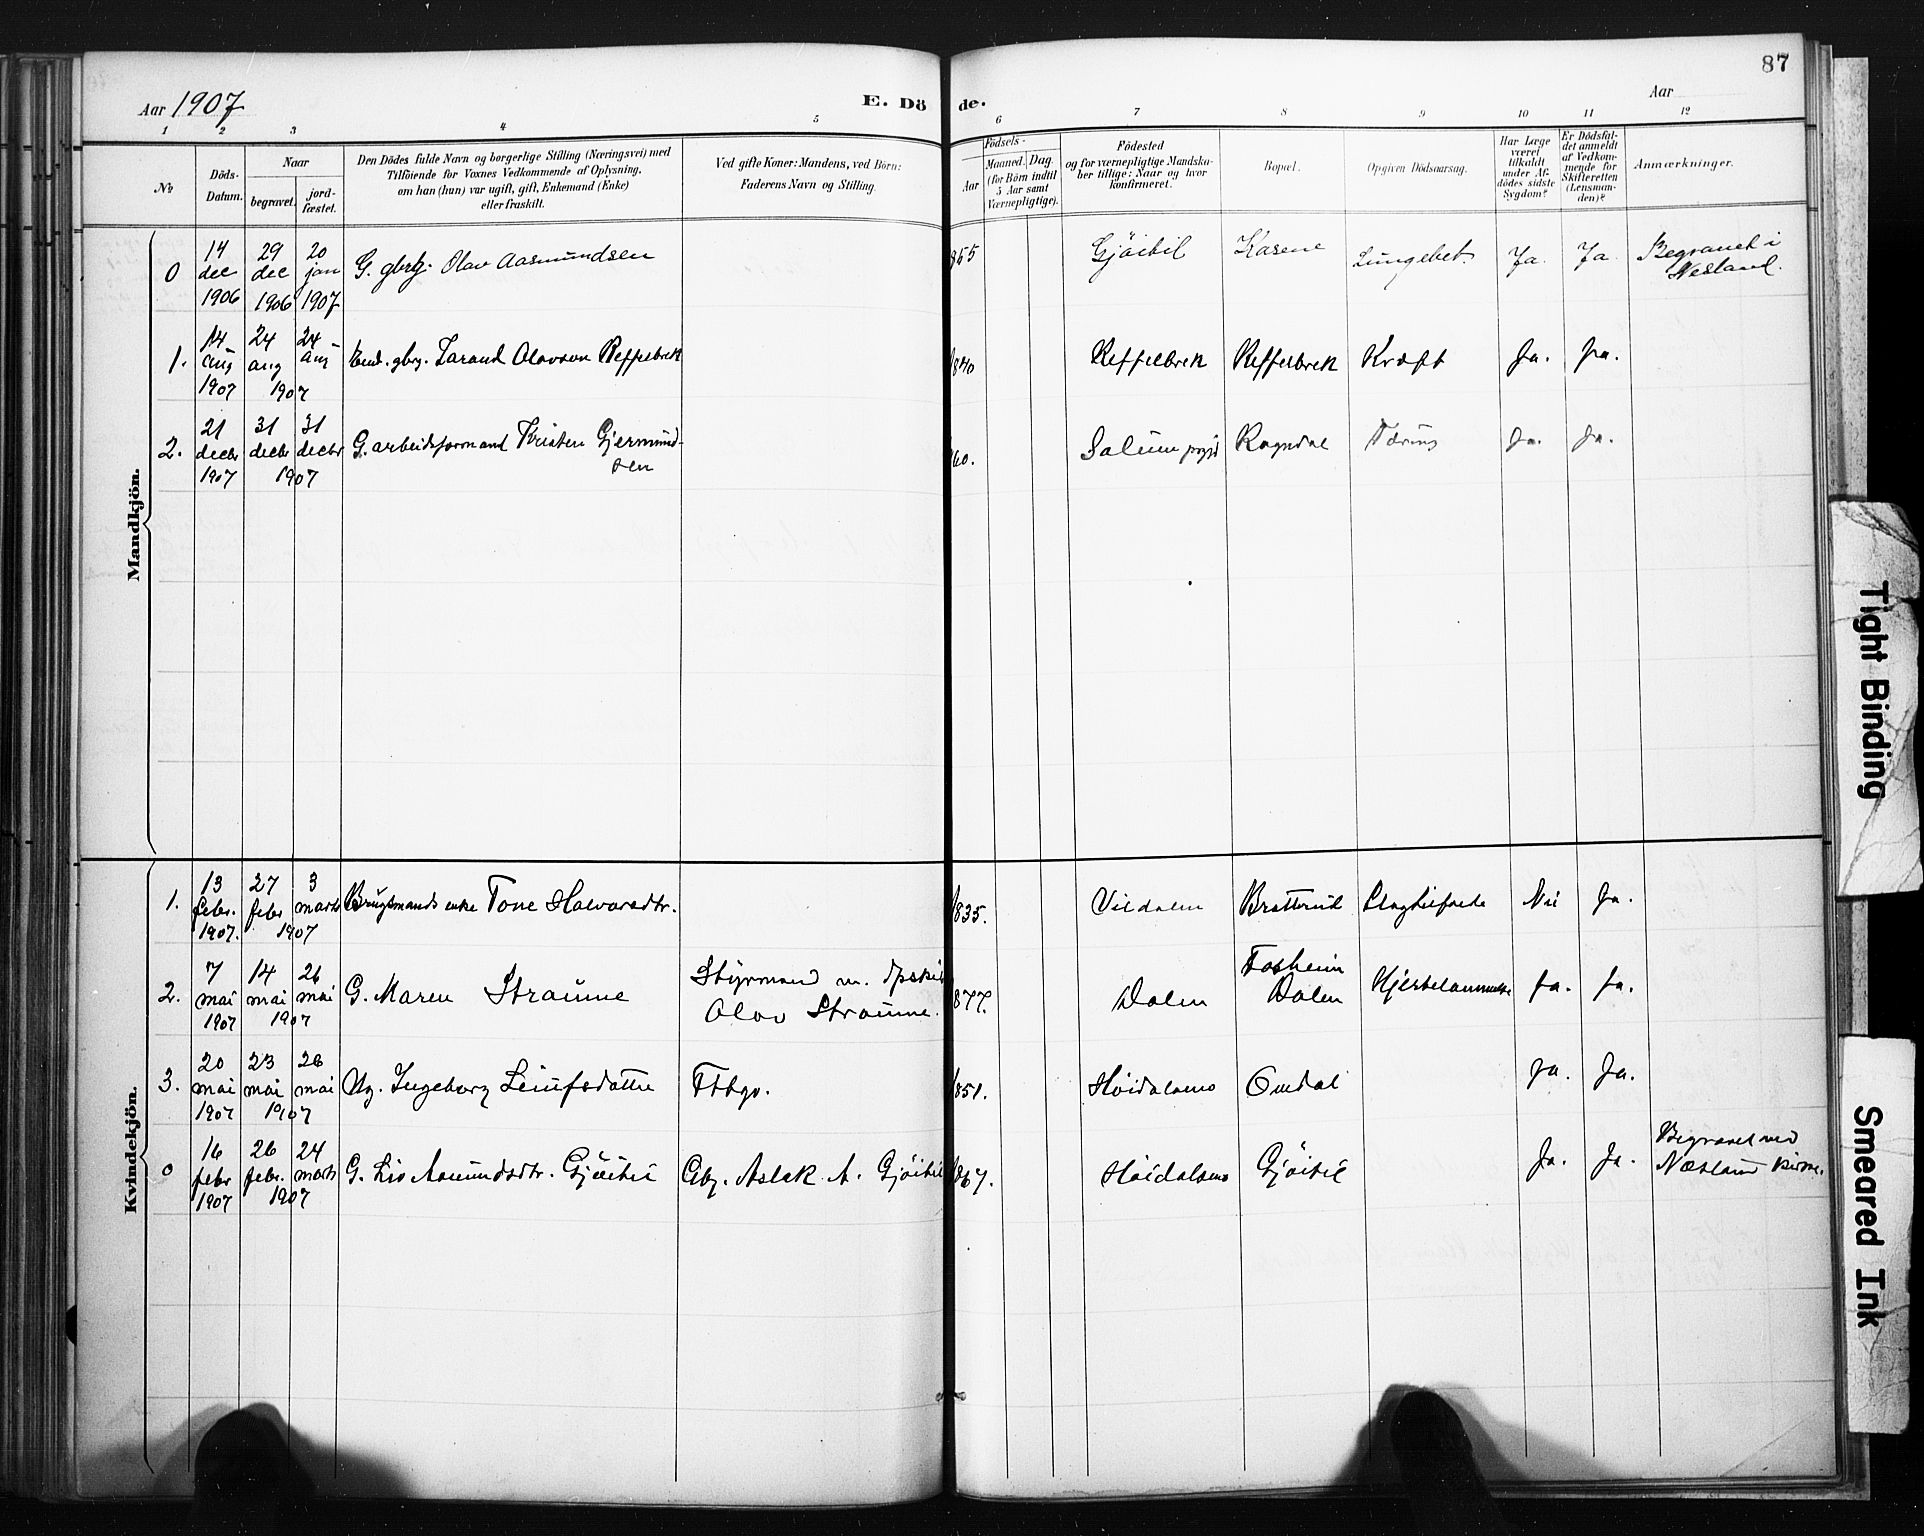 87
Aar 1907
E. Dö de.
Aar
1 2 3 4 5 6 7 8 9 10 11 12
No
Döds-
Datum.
Naar
begravet.
jord-
fæstet.
Den Dödes fulde Navn og borgerlige Stilling (Næringsvei) med
Tilföiende for Voxnes Vedkommende af Oplysning,
om han (hun) var ugift, gift, Enkemand (Enke)
eller fraskilt.
Ved gifte Koner: Mandens, ved Börn:
Faderens Navn og Stilling.
Födsels-
Aar
Maaned. Dag.
(for Börn indtil
5 Aar samt
Værnepligtige).
Födested
og for værnepligtige Mandska-
ber tillige: Naar og hvor
konfirmeret.
Bopæl.
Opgiven Dödsaarsag.
Har Læge
været
tilkaldt
under Af-
dödes sidste
Sygdom?
Er Dödsfal-
det anmeldt
af Vedkom-
mende for
Skifteretten
(Lensman-
den)?
Anmærkninger.
Mandkjön.
0 14 dec 1906 29 dec 1906 20 jan 1907 G. gbrbr. Olav Aasmundsen 865 Gjöitil Kasene Lungebet. Ja. Ja. Begravet i
Nesland.
1. 14 aug 1907 24 aug 24 aug 1907 Enk. gbrg. Tarand Olavson Reffelbrek 1840 Reffelbrek Reffelbrek Kræft Ja. Ja.
2. 21 decbr 1907 31 decbr 31 decbr 1907 G. arbeidsformand Kristen Gjermund-
sen 60. Solum prgjd Rogndal Tæring Ja. Ja.
Kvindekjön.
1. 13 febr. 1907. 27 febr 3 marts 1907 Brugsmands enke Tone Halvorsdtr. 1835. Vildalen Bratterud Slagtilfælde Nei Ja.
2. 7 mai 1907 14 mai 26 mai 1907 G. Maren Straume Styrmand m.
Olav Straume. 1877. Dalen Fosheim
Dalen Hjertelammelse Ja. Ja.
3. 20 mai 1907 23 mai 26 mai 1907 Ug. Ingeborg Leiufsdatter Fttgo. 1851. Höidalsmo Omdal Ja. Ja.
0 16 febr 1907 26 febr. 24 marts 1907 G. Liv Asmundsdtr. Gjöitil Gbr. Aslak A. Gjöitil 1867. Höidalsmo Gjöitil Ja. Ja. Begravet ved
Næsland kirke.
Tight Binding
Smeared Ink